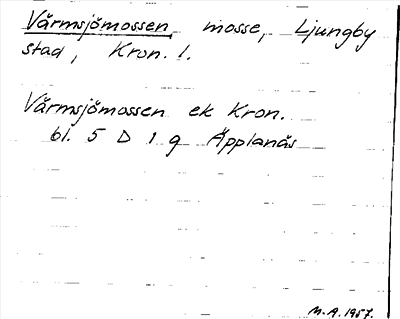 Värmsjömossen, mosse, Ljungby
stad, Kron. l.
Värmsjömossen ek Kron.
bl. 5 D 1 g Äpplanäs
M.A. 1957.